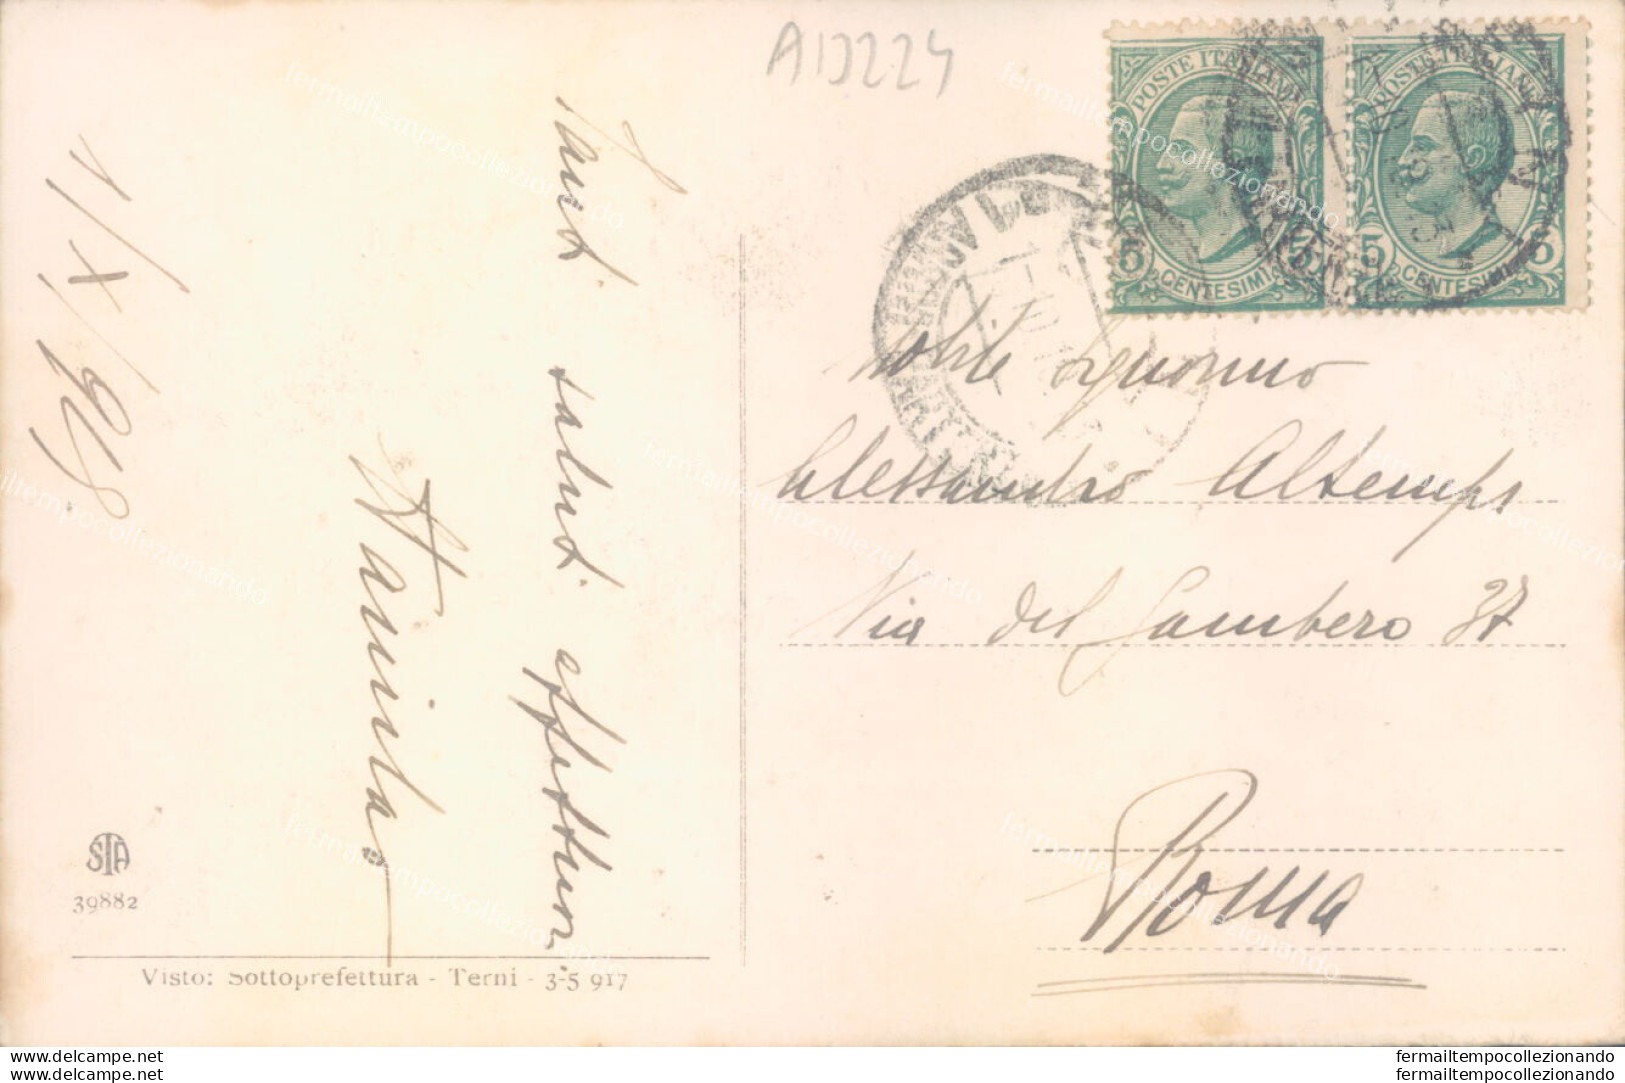 A1J224
1/X/918
Tanti saluti affettuosi
Hamilda
POSTE ITALIANE
5 CENTESIMI 5
POSTE ITALIANE
5 CENTESIMI 5
Nobile Signorino
Alessandro Altemps
Via del Gambero 37
Roma
STA
39882
Visto: Sottoprefettura - Terni - 3-5 917
fermailtempocollezionando
fermailtempocollezionando
www.delcampe.net
www.delcampe.net
fermailtempocollezionando
fermailtempocollezionando